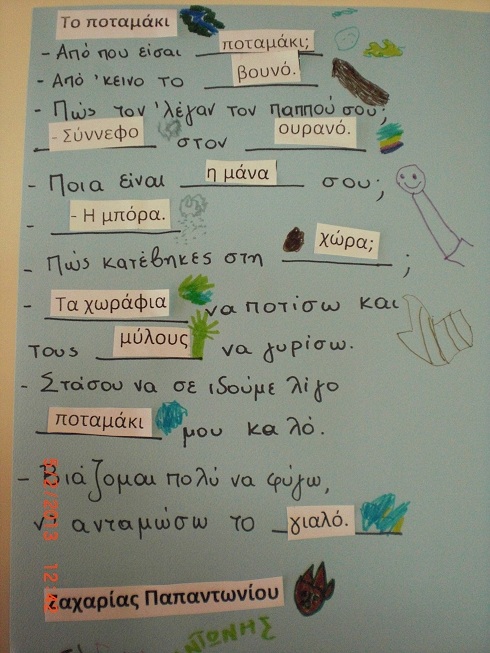 Το ποταμάκι
- Από που είσαι ποταμάκι;
- Από 'κεινο το βουνό.
- Πώς τον 'λέγαν τον παππού σου;
- Σύννεφο στον ουρανό.
- Ποια είναι η μάνα σου;
- - Η μπόρα.
- Πώς κατέβηκες στη χώρα; ;
- Τα χωράφια να ποτίσω και
τους μύλους να γυρίσω.
- Στάσου να σε ιδούμε λίγο
ποταμάκι μου καλό.
- Βιάζομαι πολύ να φύγω,
ν' ανταμώσω το γιαλό.
Ζαχαρίας Παπαντωνίου